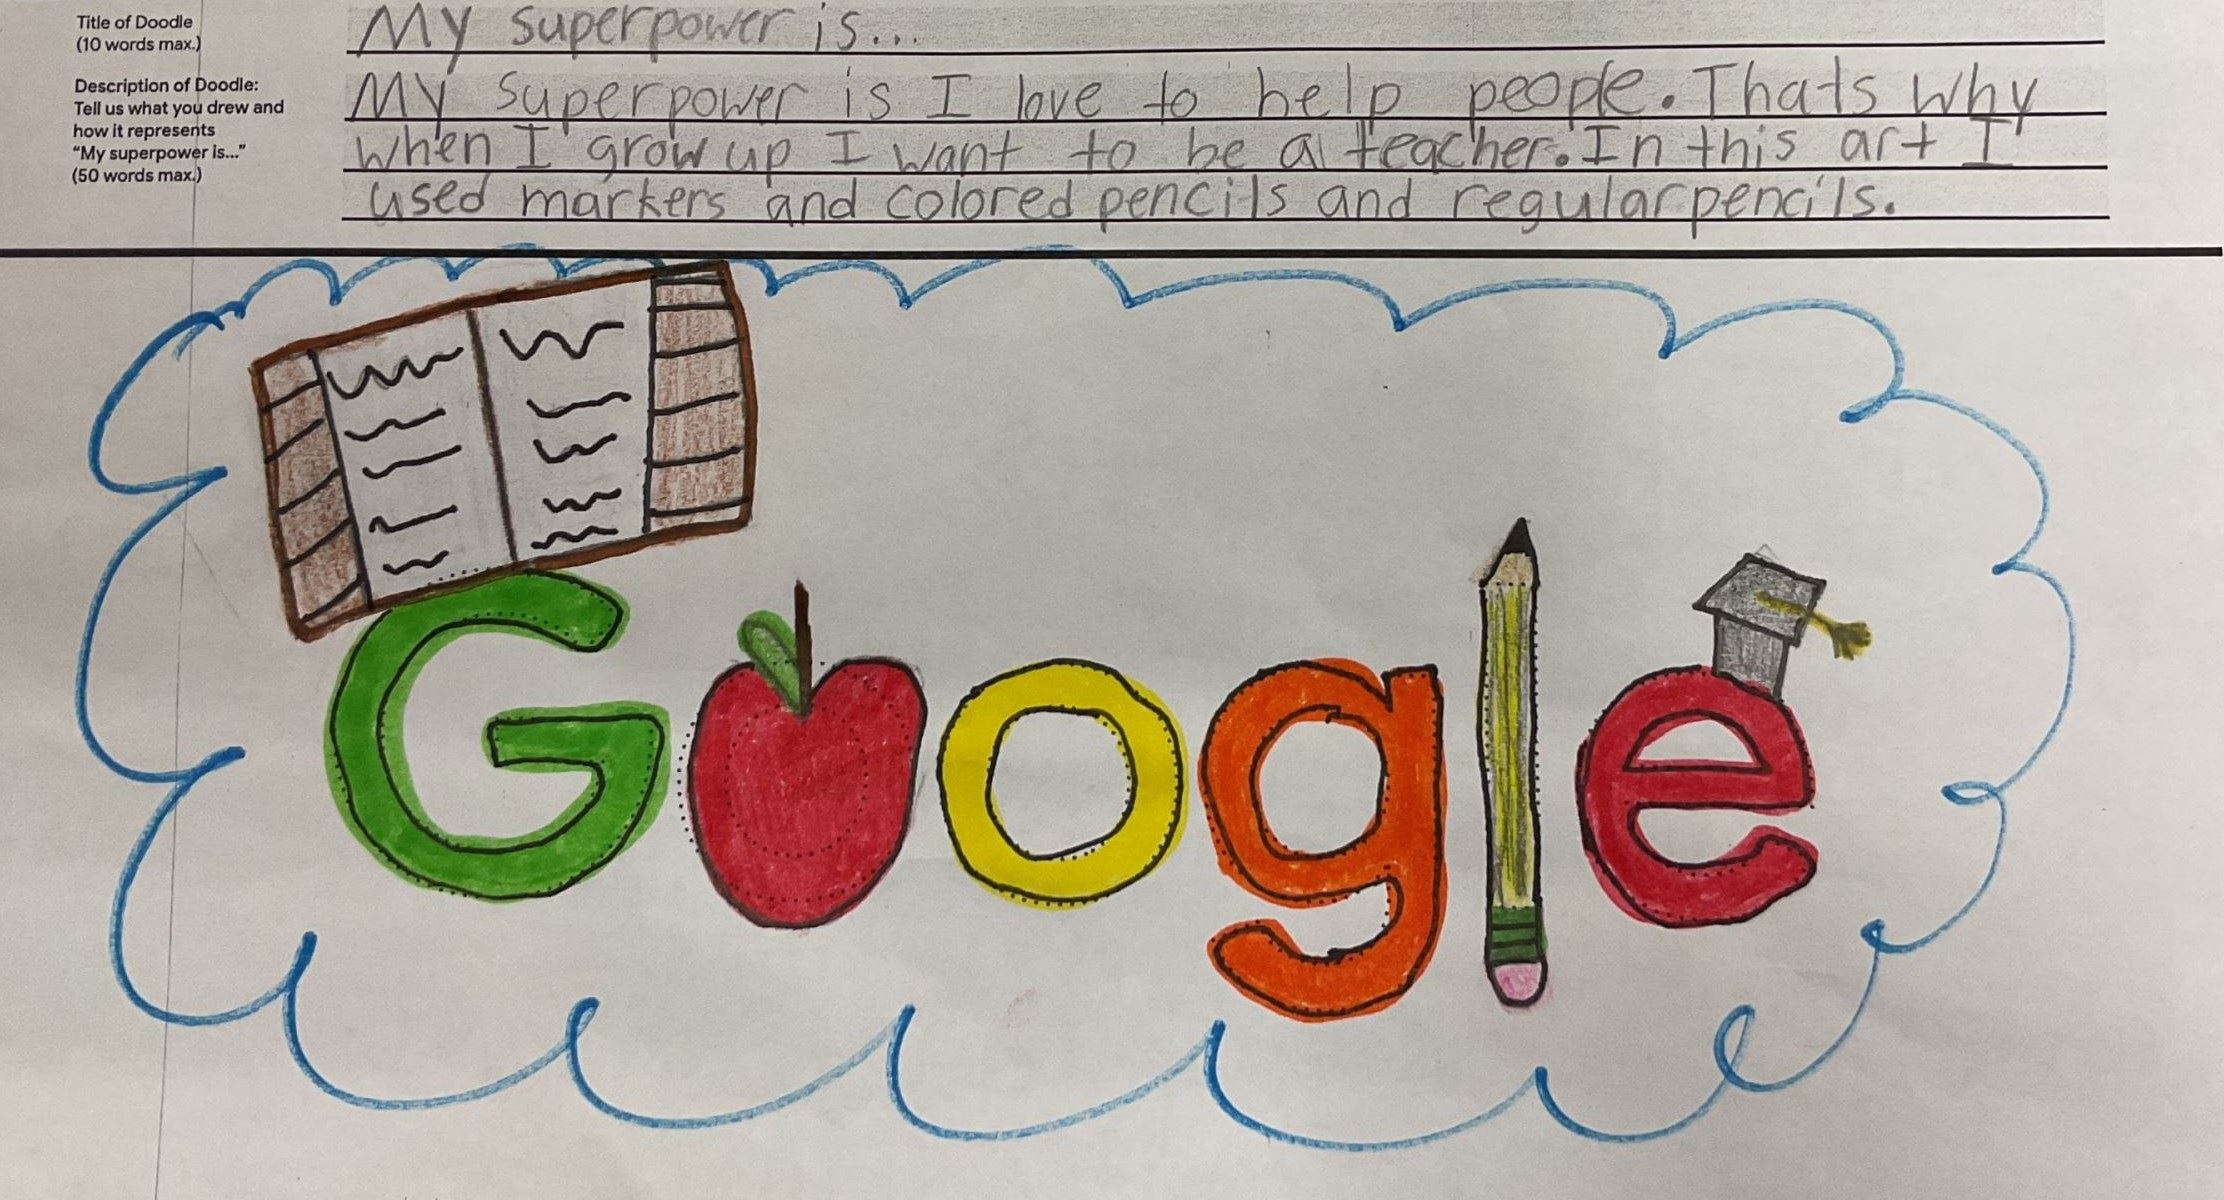 Title of Doodle
(10 words max.)
My superpower is...
Description of Doodle:
Tell us what you drew and
how it represents
"My superpower is..."
(50 words max.)
My superpower is I love to help people. Thats why
when I grow up I want to be a teacher. In this art I
used markers and colored pencils and regular pencils.
Google